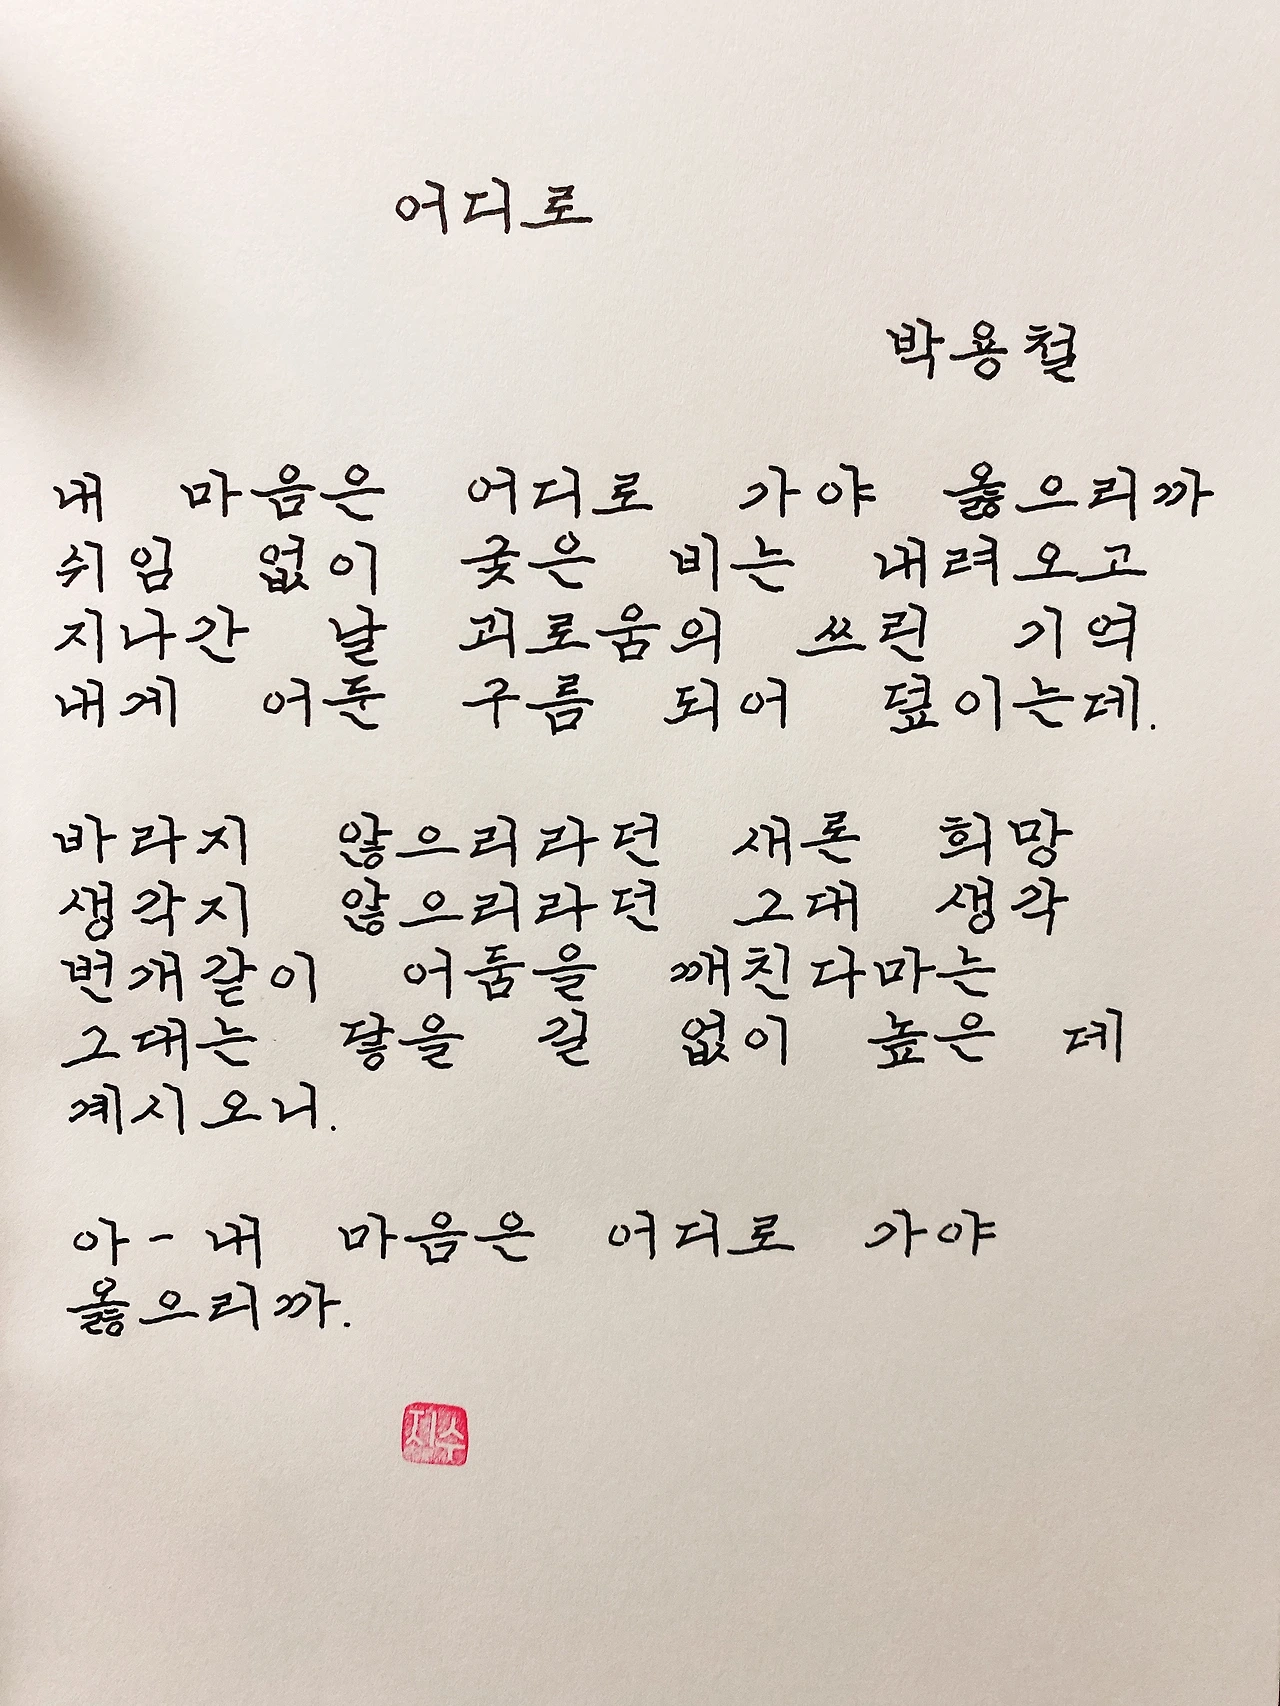 어디로
박용철
내 마음은 어디로 가야 옳으리까
쉬임 없이 궂은 비는 내려오고
지나간 날 괴로움의 쓰린 기억
내게 어둔 구름 되어 덮이는데.
바라지 않으리라던 새론 희망
생각지 않으리라던 그대 생각
번개같이 어둠을 깨친다마는
그대는 닿을 길 없이 높은 데
계시오니.
아-내 마음은 어디로 가야
옳으리까.
지수